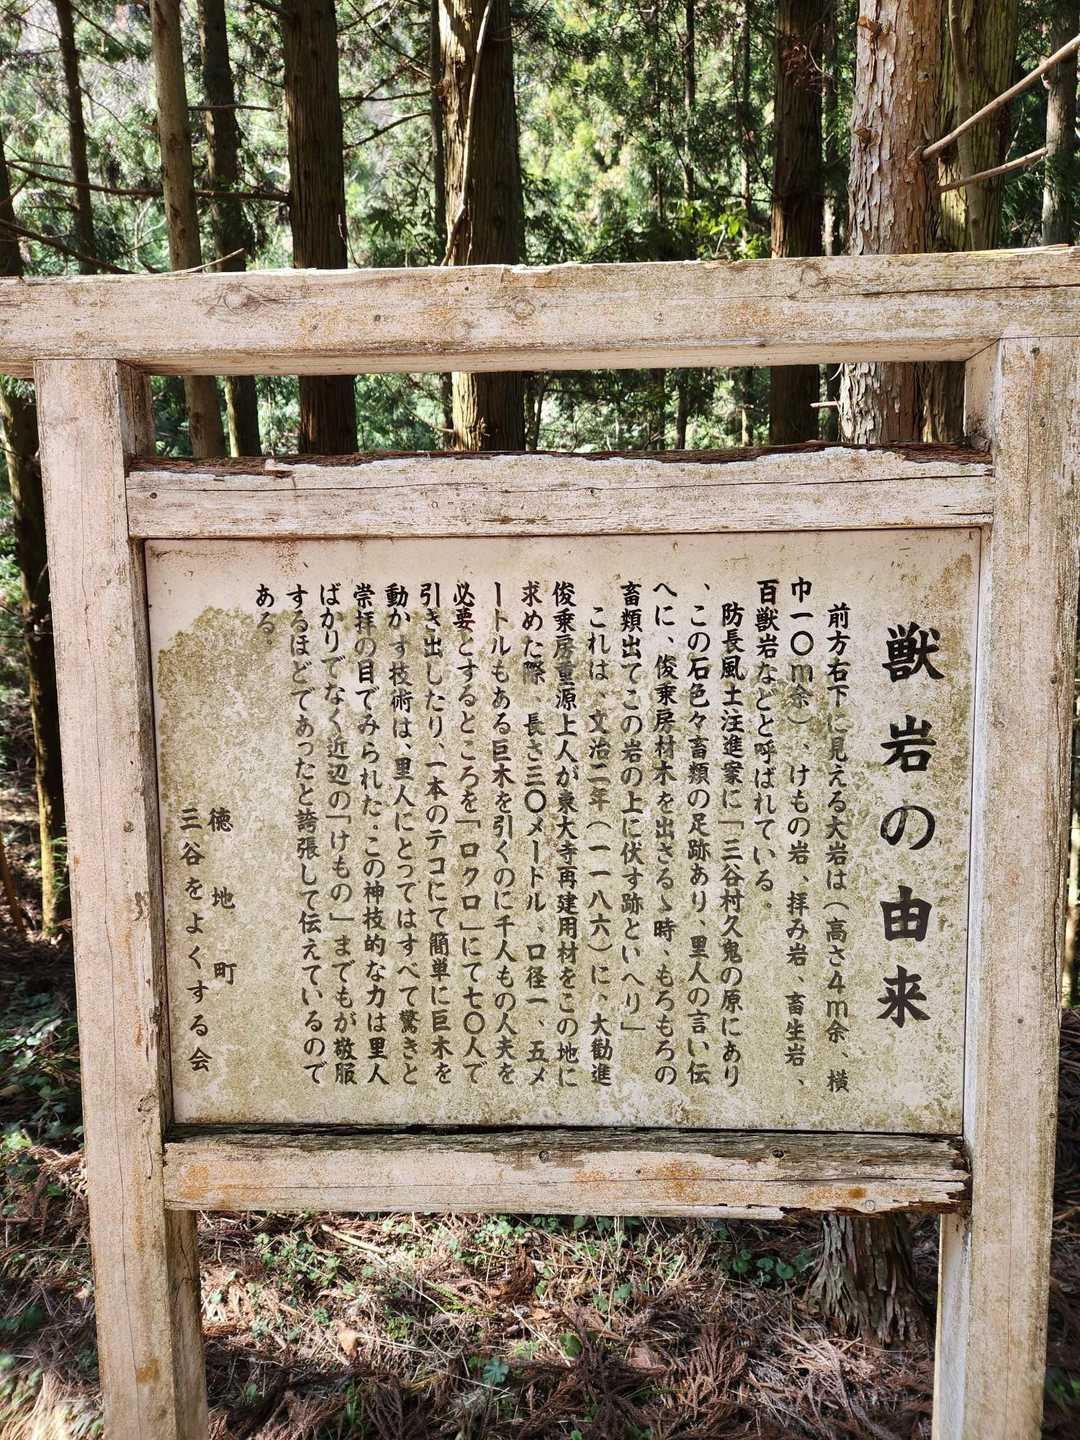 獣岩の由来
前方右下に見える大岩は（高さ4m余、横
巾一〇m余）、けもの岩、拝み岩、畜生岩、
百獣岩などと呼ばれている。
防長風土注進案に「三谷村久鬼の原にあり
、この石色々畜類の足跡あり、里人の言い伝
へに、俊乗房材木を出さるゝ時、もろもろの
畜類出てこの岩の上に伏す跡といへり」
これは、文治二年（一一八六）に、大勧進
俊乗房重源上人が東大寺再建用材をこの地に
求めた際、長さ三〇メートル、口径一、五メ
ートルもある巨木を引くのに千人もの人夫を
必要とするところを「ロクロ」にて七〇人で
引き出したり、一本のテコにて簡単に巨木を
動かす技術は、里人にとってはすべて驚きと
崇拝の目でみられた。この神技的な力は里人
ばかりでなく近辺の「けもの」までもが敬服
するほどであったと誇張して伝えているので
ある
徳地町
三谷をよくする会